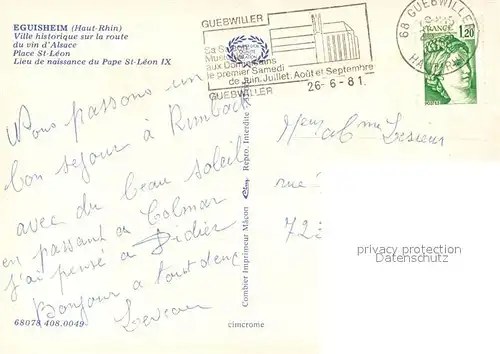 EGUISHEIM (Haut-Rhin)
Ville historique sur la route
du vin d'Alsace
Place St-Léon
Lieu de naissance du Pape St-Léon IX
GUEBWILLER
aux Dominicains
le premier Samedi
de Juin. Juillet. Août et Septembre
GUEBWILLER
26-6-81.
68 GUEBWILLER
FRANCE
1,20
Vous passons un
bon sejour à Rimbach
avec du beau soleil
en passant a Colmar
j'ai pensé a Didier
Bonjour a tout deux
Combier Imprimeur Mâcon Repro. Interdite
rue
72
privacy protection
68078 408.0049
cimcrome